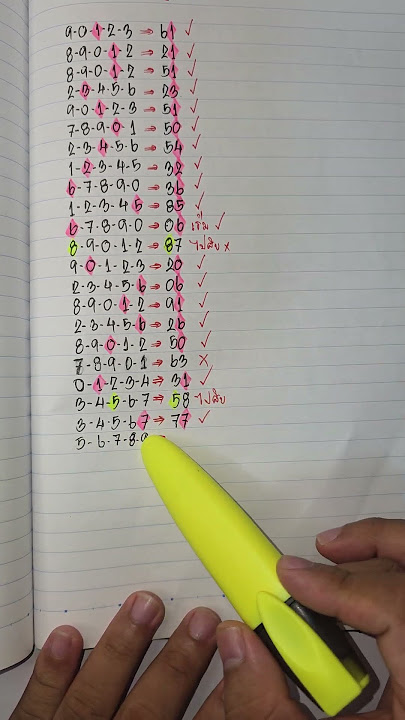 9-0-1-2-3 ⇒ 61 ✓
8-9-0-1-2 ⇒ 21 ✓
8-9-0-1-2 ⇒ 51 ✓
2-3-4-5-6 ⇒ 23 ✓
9-0-1-2-3 ⇒ 51 ✓
7-8-9-0-1 ⇒ 50 ✓
2-3-4-5-6 ⇒ 54 ✓
1-2-3-4-5 ⇒ 32 ✓
6-7-8-9-0 ⇒ 36 ✓
1-2-3-4-5 ⇒ 85 ✓
6-7-8-9-0 ⇒ 06 เริ่ม ✓
8-9-0-1-2 ⇒ 87 ไปสิบ ×
9-0-1-2-3 ⇒ 20 ✓
2-3-4-5-6 ⇒ 06 ✓
8-9-0-1-2 ⇒ 91 ✓
2-3-4-5-6 ⇒ 26 ✓
8-9-0-1-2 ⇒ 50 ✓
7-8-9-0-1 ⇒ 63 ×
0-1-2-3-4 ⇒ 31 ✓
3-4-5-6-7 ⇒ 58 ไปสิบ
3-4-5-6-7 ⇒ 77 ✓
5-6-7-8-9